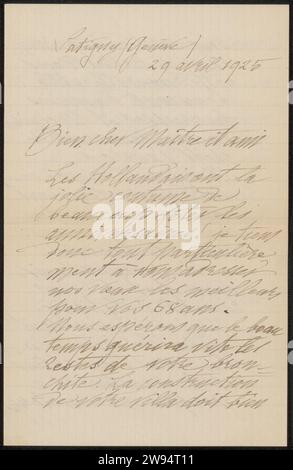 Satigny (Genève)
29 avril 1925
Bien cher Maître et ami
Les Hollandais ont la
jolie coutume de
beaucoup fêter les
anniversaires, je tiens
donc tout particulière
ment à vous adresser
nos vœux les meilleurs
pour vos 68 ans.
Nous espérons que le beau
temps guérira vite les
restes de votre bron-
chite. La construction
de votre villa doit bien
alamy
Image ID: 2W94T11
www.alamy.com